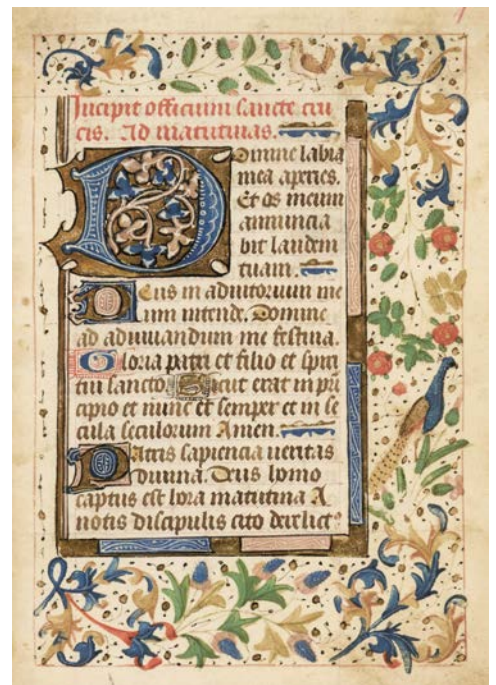 Incipit officium sancte cru
cis. Ad matutinas.
Domine labia
mea aperies.
Et os meum
annuncia
bit laudem
tuam.
Deus in adiutorium me
um intende. Domine
ad adiuuandum me festina.
Gloria patri et filio et spiri
tui sancto. Sicut erat in prī
cipio et nunc et semper et in se
cula seculorum Amen.
Patris sapiencia ueritas
diuina. Deus homo
captus est hora matutina A
notis discipulis cito derlict⁹